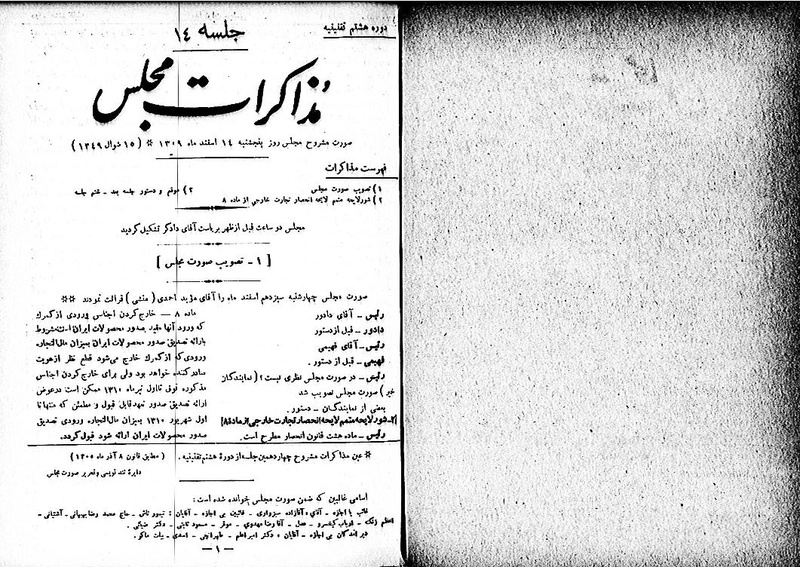 دوره هشتم تقنینیه
جلسه ۱۴
مذاکرات مجلس
صورت مشروح مجلس روز پنجشنبه ۱۴ اسفند ماه ۱۳۰۹ * (۱۵ شوال ۱۳۴۹)
فهرست مذاکرات
۱) تصویب صورت مجلس
۲) شور لایحه متمم لایحه انحصار تجارت خارجی از ماده ۸
۳) موقع و دستور جلسه بعد ـ ختم جلسه
مجلس دو ساعت قبل از ظهر بریاست آقای دادگر تشکیل گردید
[ ۱ ـ تصویب صورت مجلس ]
صورت مجلس چهارشنبه سیزدهم اسفند ماه را آقای مؤید احمدی (منشی) قرائت نمودند **
رئیس ـ آقای دادور
دادور ـ قبل از دستور
رئیس ـ آقای فهیمی
فهیمی ـ قبل از دستور .
رئیس ـ در صورت مجلس نظری نیست؟ (نمایندگان
خیر) صورت مجلس تصویب شد
بعضی از نمایندگان ـ دستور .
[۲ـ شور لایحه متمم لایحه انحصار تجارت خارجی از ماده ۸]
رئیس ـ ماده هشت قانون انحصار مطرح است .
ماده ۸ ـ خارج کردن اجناس ورودی از گمرک
که ورود آنها مقید بصدور محصولات ایران است مشروط
بارائه تصدیق صدور محصولات ایران بمیزان مال‌التجاره
ورودی که از گمرک خارج می‌شود قطع نظر از هویت
صادر کننده خواهد بود ولی برای خارج کردن اجناس
مذکوره فوق تا اول تیر ماه ۱۳۱۰ ممکن است در عوض
ارائه تصدیق صدور تعهد قابل قبول و مطمئن که منتها تا
اول شهریور ۱۳۱۰ بمیزان مال‌التجاره ورودی تصدیق
صدور محصولات ایران ارائه شود قبول گردد.
* عین مذاکرات مشروح چهاردهمین جلسه از دورهٔ هشتم تقنینیه . (مطابق قانون ۸ آذر ماه ۱۳۰۵)
دایرهٔ تند نویسی و تحریر صورت مجلس
اسامی غائبین که ضمن صورت مجلس خوانده شده است :
غائب با اجازه ـ آقای : آقازاده سبزواری ـ غائبین بی اجازه ـ آقایان : تیمور تاش ـ حاج محمد رضا بهبهانی ـ آشتیانی ـ
اعظم زنگنه ـ ارباب کیخسرو ـ ـ آقا رضا مهدوی ـ موقر ـ مسعود ثابتی ـ دکتر ضیائی .
دیر آمدگان بی اجازه ـ آقایان : دکتر امیر اعلم ـ طهرانچی ـ اسدی ـ بیات ماکو .
ـ ۱ ـ